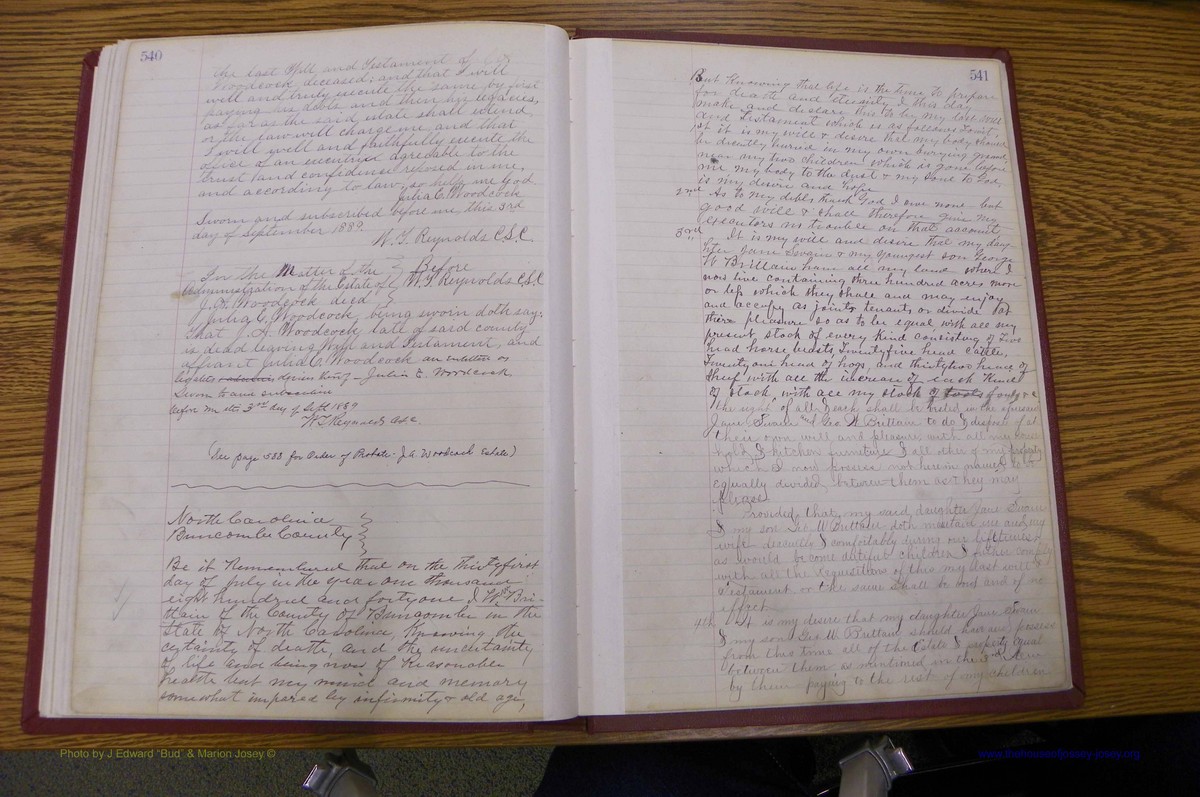 540
the last Will and Testament of
Woodcock deceased; and that I will
well and truly execute the same by first
paying his debts and then his legacies,
as far as the said estate shall extend
or the law will charge me, and that
I will well and faithfully execute the
office of an executrix agreeable to the
trust and confidence reposed in me,
and according to law; so help me God
Julia C. Woodcock
Sworn and subscribed before me, this 3rd
day of September 1889.
W. T. Reynolds C.S.C.
In the Matter of the } Before
Administration of the Estate of } W. T. Reynolds C.S.C
J. A. Woodcock died }
Julia C. Woodcock, being sworn doth say:
That J. A. Woodcock, late of said county
is dead leaving Will and Testament, and
affiant Julia C. Woodcock an
Julia C. Woodcock
Sworn to and subscribed
before me this 3rd day of Sept 1889
W. T. Reynolds C.S.C.
(See page 538 for Order of Probate - J. A. Woodcock Estate)
North Carolina }
Buncombe County }
Be it Remembered that on the thirtyfirst
day of July in the year one thousand
eight hundred and fortyone I Wm Brit-
tain of the County of Buncombe in the
State of North Carolina, Knowing the
certainty of death, and the uncertainty
of life and being now of Reasonable
health but my mind and memory
somewhat impared by infirmity & old age,
541
But Knowing this life is the time to prepare
for death and eternity I this day
make and declare this to be my last Will
and Testament which is as follows Towit:
1st it is my will & desire that my body should
be decently buried in my own burying ground
near my two children which is gone before
me my body to the dust & my soul to God,
is my desire and hope
2nd As to my debts, thank God I owe none - but
good will & shall therefore give my
executors no trouble on that account,
3rd It is my will and desire that my daugh-
ter Jane Swain & my youngest son George
W Brittain have all my land where I
now live containing three hundred acres more
or less which they shall and may enjoy
and occupy as joint tenants or divide at
their pleasure so as to be equal with all my
present stock of every kind consisting of Five
head horse beasts, Twentyfive head Cattle,
Twentyone head of hogs, and thirtytwo head of
Sheep with all the increase of each kind
of stock, with all my stock of
the right of all & each shall be vested in the aforesaid
Jane Swain and Geo W. Brittain to do & dispose of at
their own will and pleasure, with all my house
hold & kitchen furniture & all other of my property
which I now possess not herein named to be
equally divided between them as they may
please.
Provided that my said daughter Jane Swain
& my son Geo W Brittain doth maintain me and my
wife decently & comfortably during our lifetimes
as would become dutiful children & further comply
with all the requisitions of this my last will &
Testament or the same shall be void and of no
effect.
4th It is my desire that my daughter Jane Swain
& my son Geo. W. Brittain should have and possess
from this time all of the estate & property equal
between them as mentioned in the
by them paying to the rest of my children
Photo by J Edward "Bud" & Marion Josey ©
www.thehouseofjossey-josey.org